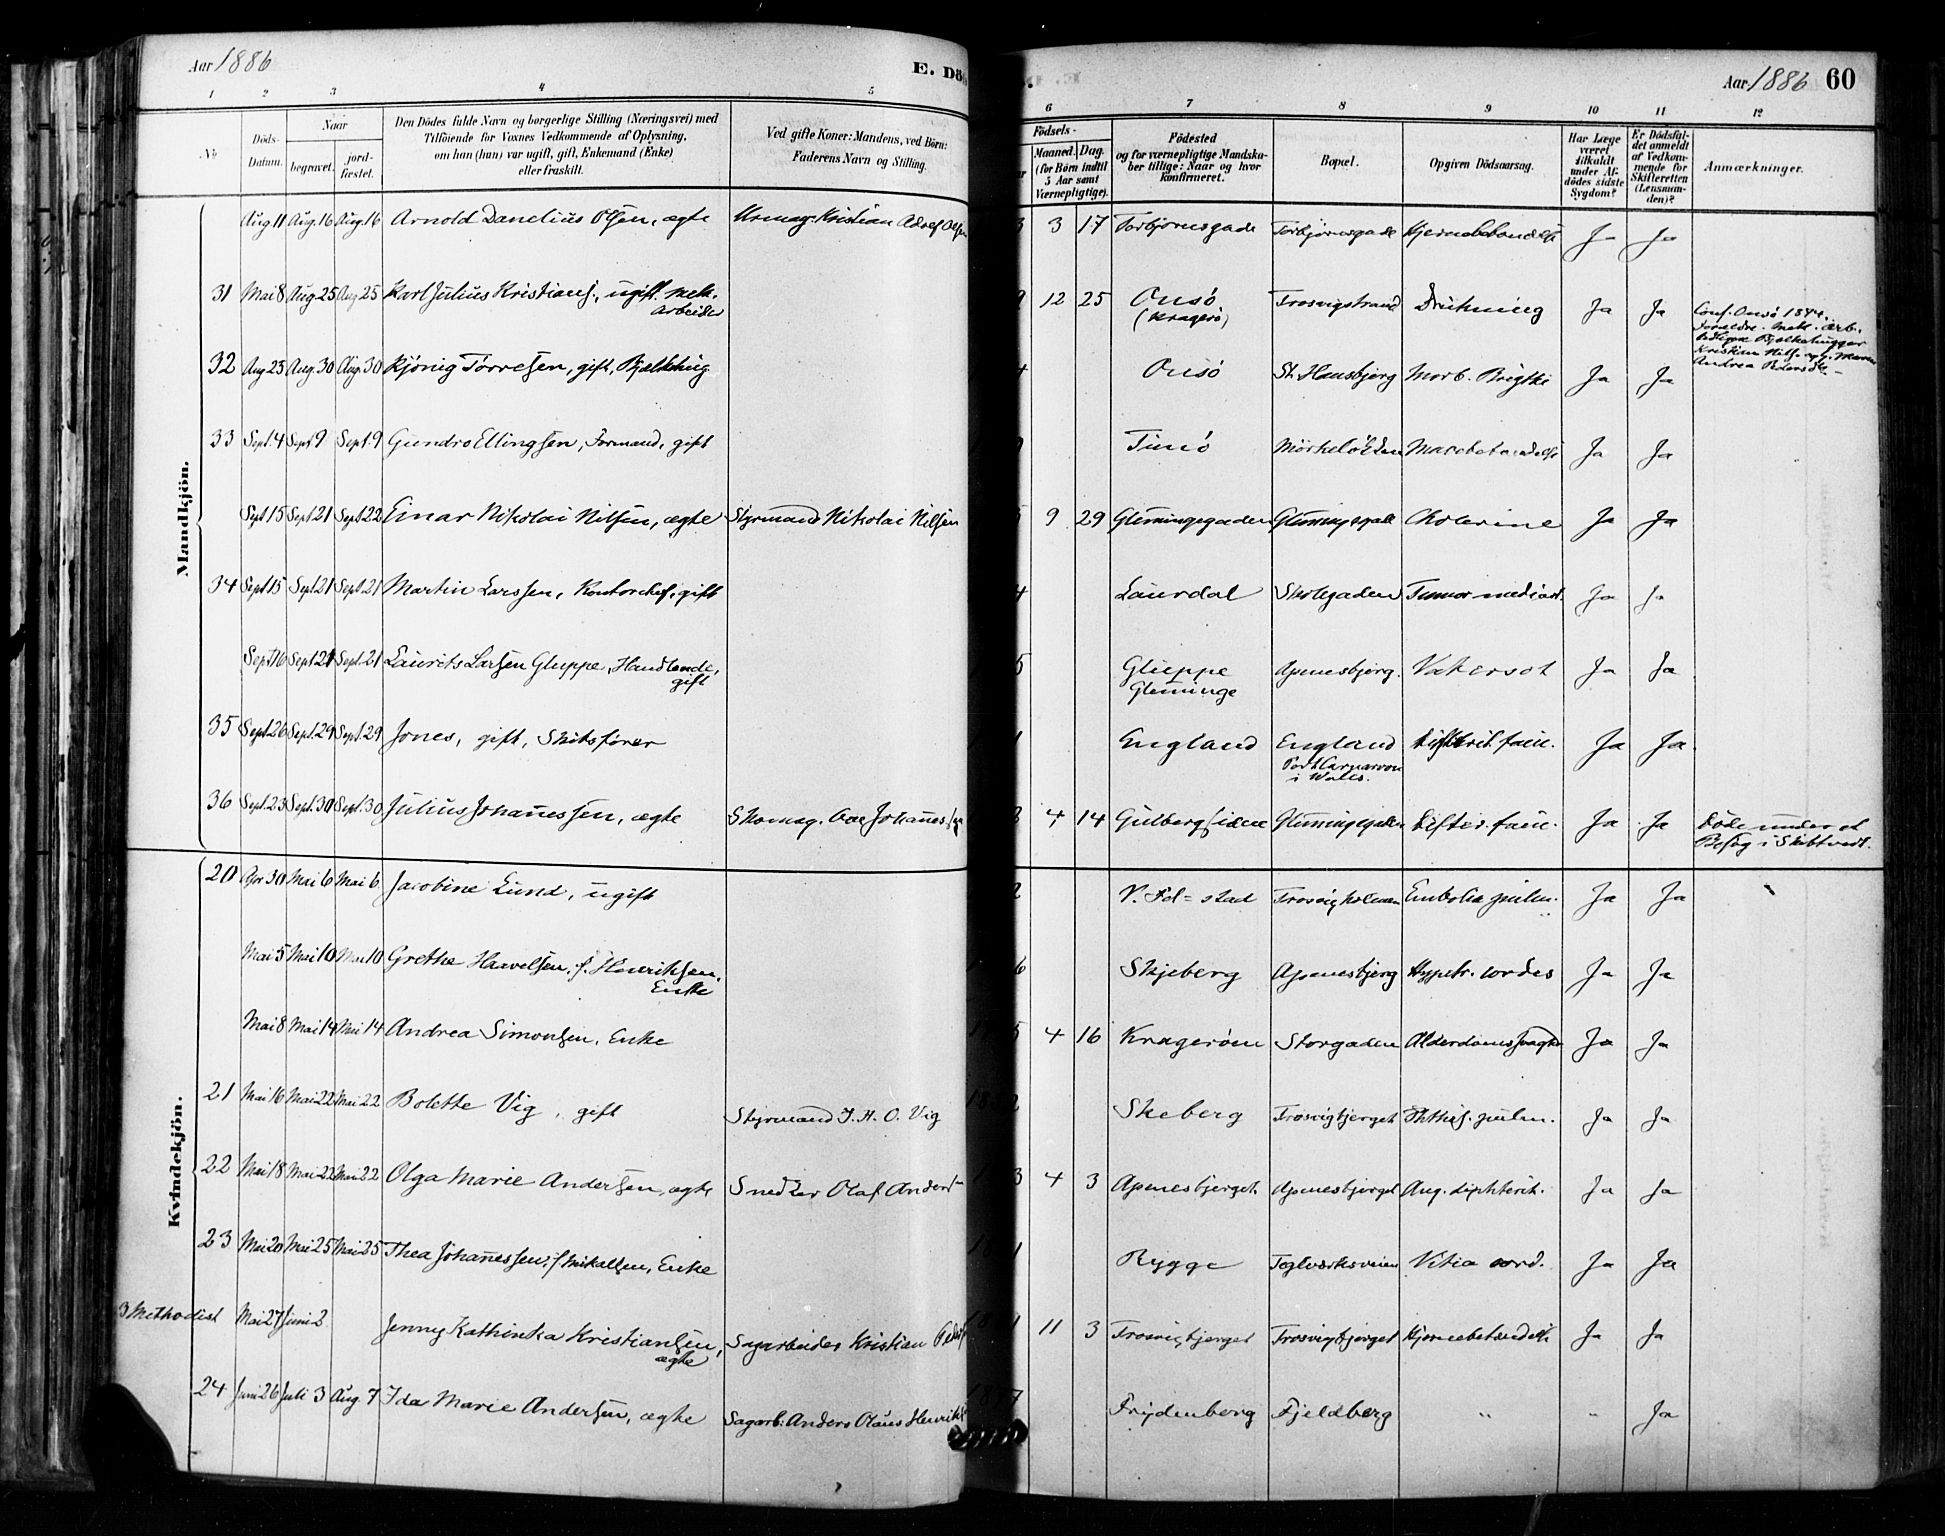 Aar 1886
E. Dö
Aar 1886 60
1 2 3 4 5 6 7 8 9 10 11 12
No
Döds-Datum.
Naar
begravet.
jord-fæstet.
Den Dödes fulde Navn og borgerlige Stilling (Næringsvei) med
Tilföiende for Voxnes Vedkommende af Oplysning,
om han (hun) var ugift, gift, Enkemand (Enke)
eller fraskilt.
Ved gifte Koner: Mandens, ved Börn:
Faderens Navn og Stilling.
Födsels-
Maaned. Dag.
(for Börn indtil
5 Aar samt
Værnepligtige).
Födested
og for værnepligtige Mandska-
ber tillige: Naar og hvor
konfirmeret.
Bopæl.
Opgiven Dödsaarsag.
Har Læge
været
tilkaldt
under Af-
dödes sidste
Sygdom?
Er Dödsfal-
det anmeldt
af Vedkom-
mende for
Skifteretten
(Lensman-
den)?
Anmærkninger.
Mandkjön.
Aug. 11 Aug. 16 Aug. 16 Arnold Danelius Olsen, ægte Urmag. Kristian Adolf Olsen 3 3 17 Torbjörnsgade Torbjörnsgade Ja Ja
31 Mai 8 Aug 25 Aug 25 Karl Julius Kristians., ugift. mek. 9 12 25 Onsö Trosvigstrand Drukning Ja Ja
arbeider (Kragerö)
Conf. Onsö 1874.
Forældre. Mek. arb.
Kristian Nils og Maren
Andrea Pedersdt.
32 Aug 23 Aug. 30 Aug. 30 Kjönig Törresen, gift, 4 Onsö St. Hansbjerg Morb. Brigtii Ja Ja
33 Sept. 4 Sept 9 Sept. 9 Gundro Ellingsen, Formand, gift 9 Tunö Ja Ja
Sept 15 Sept 21 Sept 22 Einar Nikolai Nilsen, ægte Styrmand Nikolai Nilsen 5 9 29 Glemmingegaden Cholerine Ja Ja
34 Sept 15 Sept 21 Sept. 21 Martin Larssen, Kontorchef, gift 4 Laurdal Skolegaden Tumor mediast. Ja Ja
Sept 16 Sept 21 Sept. 21 Laurits Larsen Gluppe, Handlende, 5 Gluppe Apenesbjerg. Vatersot Ja Ja
gift Glemminge
35 Sept. 26 Sept. 29 Sept. 29 Jones, gift, Skibsförer 1 England England Difterit. fauc. Ja Ja
Port Carnarvon
i Wales.
36 Sept. 23 Sept. 30 Sept. 30 Julius Johannessen, ægte Skomag. Ove Johannessen 8 4 14 Gulbergsiden Glemmingegaden Difter. fauc. Ja Ja Döde under et
Besög i Skibtvedt.
Kvindekjön.
20 Apr 30 Mai 6 Mai 6. Jacobine Lund, ugift 2 V. Fd=stad Trosvigholmen Embolia pulm. Ja Ja
Mai 5 Mai 10 Mai 10 Grethe Haavelsen, f. Henriksen. 6 Skjeberg Apenesbjerg Hypetr. cordis Ja Ja
Enke
Mai 8 Mai 14 Mai 14 Andrea Simonsen, Enke 5 4 16 Kragerøen Storgaden Alderdomssvaghed Ja Ja
21 Mai 16 Mai 22 Mai 22 Bolette Vig, gift Styrmand J. H. O. Vig 18 2 Skeberg Trosvigbjerget Phthis. pulm. Ja Ja
22 Mai 18 Mai 22 Mai 22 Olga Marie Andersen, ægte Snedker Olaf Anders 3 4 3 Apenesbjerget Apenesbjerget Ang. diphterit. Ja Ja
23 Mai 20 Mai 25 Mai 25 Thea Johannessen, f. Mikalsen, Enke 1 Rygge Teglværksveien Vitia cord. Ja Ja
3 Methodist Mai 27 Juni 2 Jenny Kathinka Kristiansen, Sagarbeider Kristian 18 1 11 3 Trosvigbjerget Trosvigbjerget Hjernebetændelse Ja Ja
ægte
24 Juni 26 Juli 3 Aug. 7 Ida Marie Andersen, ægte Sagarb. Anders Olaus Henriks 7 Frydenberg Fjeldberg " " Ja